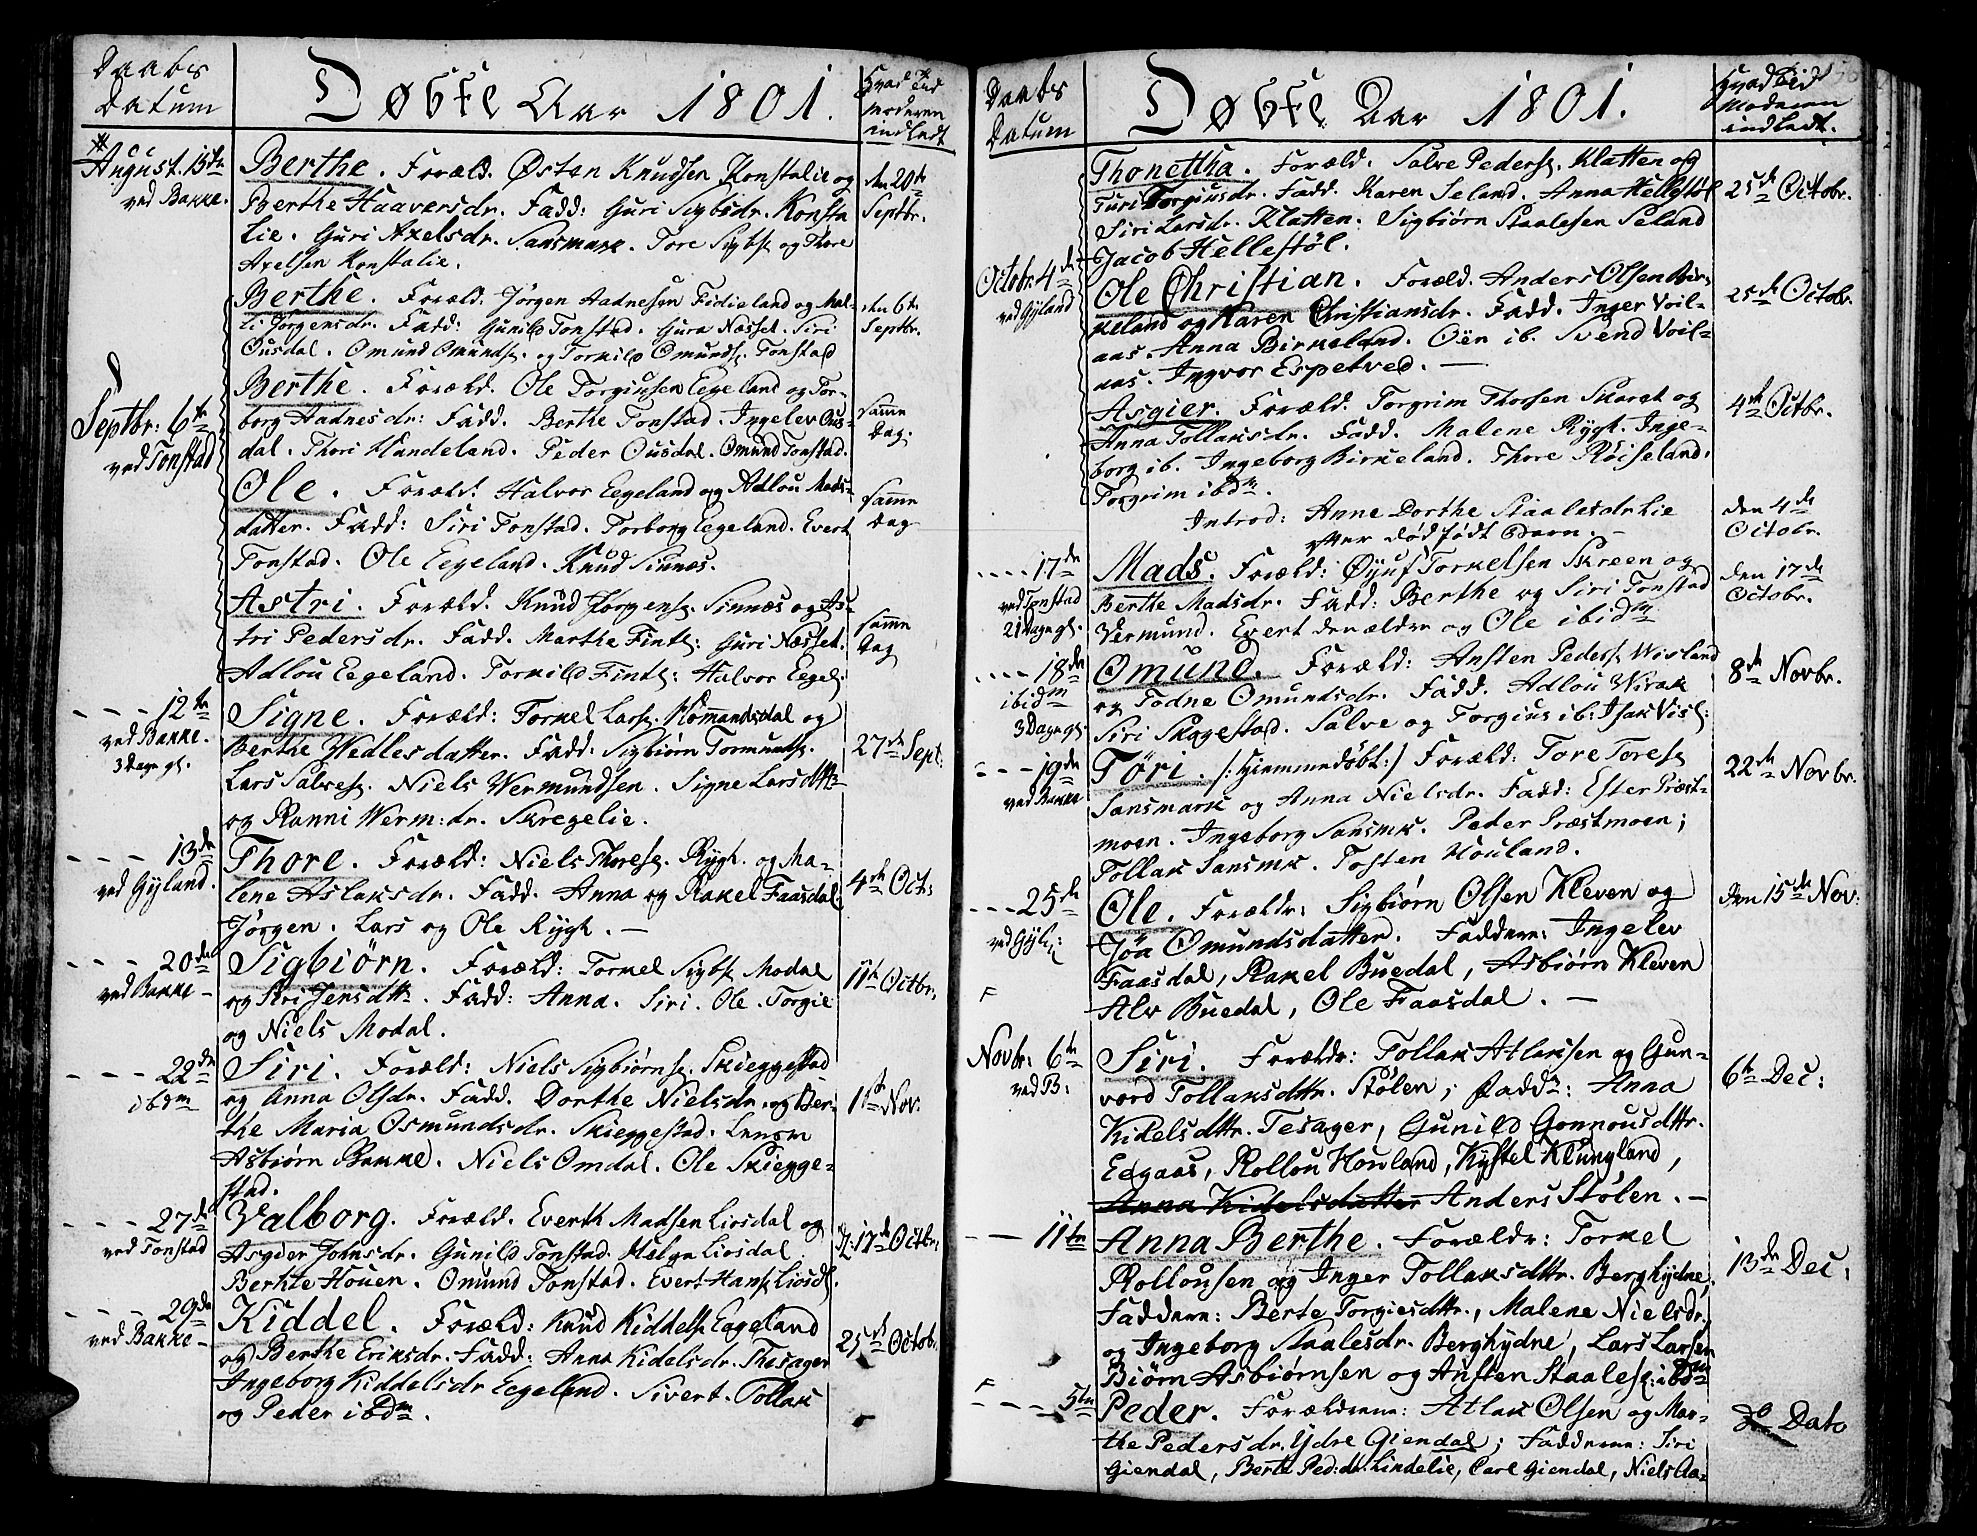 Daabs
Datum
Døbte Aar 1801.
Hvad Tid
Moderen
indledt
August. 15de
ved Bakke.
Berthe. Foræld. Østen Knudsen Konstalie og
Berthe Haaversdr. Fadd: Guri Sigbsdr. Konsta
lie. Guri Axelsdr. Sansmark. Tore Sigbs. og Thore
Axelsen Konstalie.
den 20de
Septbr.
Berthe. Foræld: Jørgen Aadnesen Fidieland og Mal-
li Jørgensdr. Fadd: Gunild Tonstad. Gura Næsset. Siri
Ousdal. Omund Omunds. og Torkild Omunds. Tonstad
den 6te
Septbr.
Septbr: 6te
ved Tonstad
Berthe. Foræld. Ole Torgiusen Eegeland og Tor-
borg Aadnesdr: Fadd. Berthe Tonstad. Ingelev Ous-
dal. Thori Handeland. Peder Ousdal. Omund Tonstad.
samme
Dag.
Ole. Foræld: Halvor Eegeland og Adlou Mads-
datter. Fadd: Siri Tonstad. Torborg Eegeland. Evert
Tonstad. Ole Eegeland. Knud Sinnes.
samme
Dag
Astri. Foræld. Knud Jørgens. Sinnæs og As-
tri Pedersdr. Fadd. Marthe Fintl: Guri Næsset.
Adlou Eegeland. Torkild Fintl: Halvor Eegel.
samme
Dag
- - - - 12te
ved Bakke.
3 Dage gl.
Signe. Foræld: Torkel Lars. Homandsdal og
Berthe Wedlesdatter. Fadd: Sigbiørn Tormunds.
Lars Salves. Niels Wermundsen. Signe Larsdttr
og Ranni Werm:dr. Skregelie.
27de Sept.
- - - - 13de
ved Gyland.
Thore. Foræld: Niels Thores. Rygh. og Ma-
lene Aslaksdr. Fadd. Anna og Rakel Faasdal.
Jørgen. Lars og Ole Rygh. —
4de Oct:
- - - 20de
ved Bakke -
Sigbiørn. Foræld: Torkel Sigbs. Modal
og Siri Jensdtr. Fadd: Anna. Siri. Ole. Torgie
og Niels Modal.
11te Octbr:
- - - - 22de
ibdm
Siri. Foræld: Niels Sigbiørns. Skieggestad
og Anna Olsdr. Fadd. Dorthe Nielsdr. og Ber-
the Maria Osmundsdr. Skieggestad. Lensm
Asbiørn Bakke. Niels Omdal. Ole Skiegge-
stad.
1ste Nov:
- - - - 27de
ved Tonstad
Valborg. Foræld. Everth Madsen Liosdal og
Asgier Johnsdr. Gunild Tonstad. Helge Liosdal
Berthe Houen. Omund Tonstad. Evert Hans. Liosdl.
17de Octbr:
- - - - 29de
ved Bakke -
Kiddel. Foræld: Knud Kiddels. Eegeland
og Berthe Eriksdr. Fadd: Anna Kidelsdr. Thesager
Ingeborg Kiddelsdr Eegeland. Sivert. Tollak
og Peder ibdm.
25de Octobr.
Daabs
Datum
Døbte Aar 1801.
Hvad Tid
Moderen
indledt.
Thonettha. Foræld. Salve Peders. Klatten og
Turi Torgiusdr. Fadd. Karen Seland. Anna Hellestøl
Siri Larsdr. Klatten. Sigbiørn Staalesen Seland
Jacob Hellestøl.
25de Octobr.
Octobr. 4de
ved Gyland
Ole Christian. Foræld. Anders Olsen Bir-
keland og Karen Christiansdr. Fadd. Inger Voil-
aas. Anna Birkeland. Oën ib. Svend Voil-
aas. Ingvor Espetved. —
25de Octobr.
Asgier. Foræld. Torgrim Thorsen Skaret og
Anna Tollaksdr. Fadd. Malene Rygh. Inge-
borg ib. Ingeborg Birkeland. Thore Røiseland.
Torgrim ibdm.
4de Octbr.
Introd: Anne Dorthe Staalesdr Lie
efter dødfødt Barn. -
den 4de
Octobr.
- - - - 17de
ved Tonstad
21 Dage gl.
Mads. Foræld: Øyuf Torkelsen Skreen og
Berthe Madsdr. Fadd: Berthe og Siri Tonstad
Vermund. Evert den ældre og Ole ibidm
den 17de
Octobr.
- - - - 18de
ibidm
3 Dage gl.
Omund. Foræld: Ansten Peders. Wisland
og Todne Omundsdr. Fadd. Adlou Wirak
Siri Skagestad. Salve og Torgius ib: Isak Visl:
8de Novbr.
- - - 19de
ved Bakke
Tøri. /: hiemmedøbt :/ Foræld: Tore Tores.
Sansmark og Anna Nielsdr. Fadd: Ester Præst-
moen. Ingeborg Sansmk. Peder Præstmoen;
Tollak Sansmk. Tosten Houland.
22de Novbr.
- - - 25de
ved Gyl:
Ole. Forældr: Sigbiørn Olsen Kleven og
Jøa Omundsdatter. Faddere: Ingelev
Faasdal, Rakel Buedal, Asbiørn Kleven
Alv Buedal, Ole Faasdal. —
Den 15de Nov:
F
Novbr: 6te
ved B:
Siri. Forældr: Tollak Atlaksen og Gun-
vord Tollaksdttr. Stølen; Faddr: Anna
Kidelsdttr. Tesager, Gunild Gonnousdttr.
Eegaas, Rollou Houland, Kystel Klungland,
Anna Kidelsdatter Anders Stølen. -
6te Dec:
- - 11te
Anna Berthe. Forældr: Torkel
Rollousen og Inger Tollaksdttr. Berghydne;
Faddere: Berte Torgiesdttr., Malene Nielsdr.
og Ingeborg Staalesdr. Berghydne, Lars Larsen
Biørn Asbiørnsen og Ansten Staales. ibdm
13de Dec:
F
- - - - 5te
Peder. Forældrene: Atlak Olsen og Mar-
the Pedersdr. Ydre Giendal; Faddere: Siri
Giendal, Berte Ped:dr. Lindelie, Carl Giendal, Niels Aa-
Do Dato